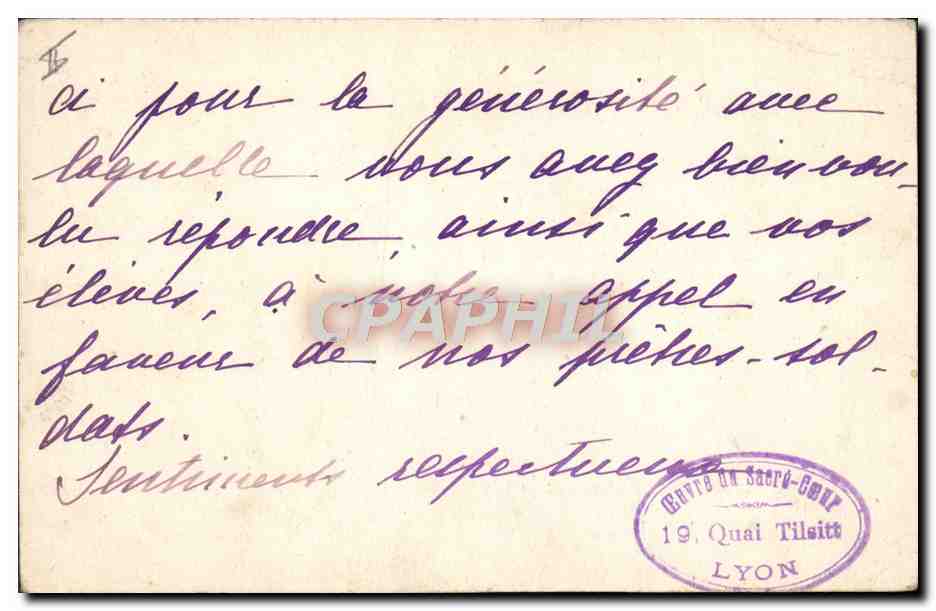 II
ci pour la générosité avec
laquelle vous avez bien vou-
lu répondre ainsi que vos
élèves, à notre appel en
faveur de nos prêtres-sol-
dats.
Sentiments respectueux
CPAPHIL
Œuvre du Sacré-Cœur
19, Quai Tilsitt
LYON